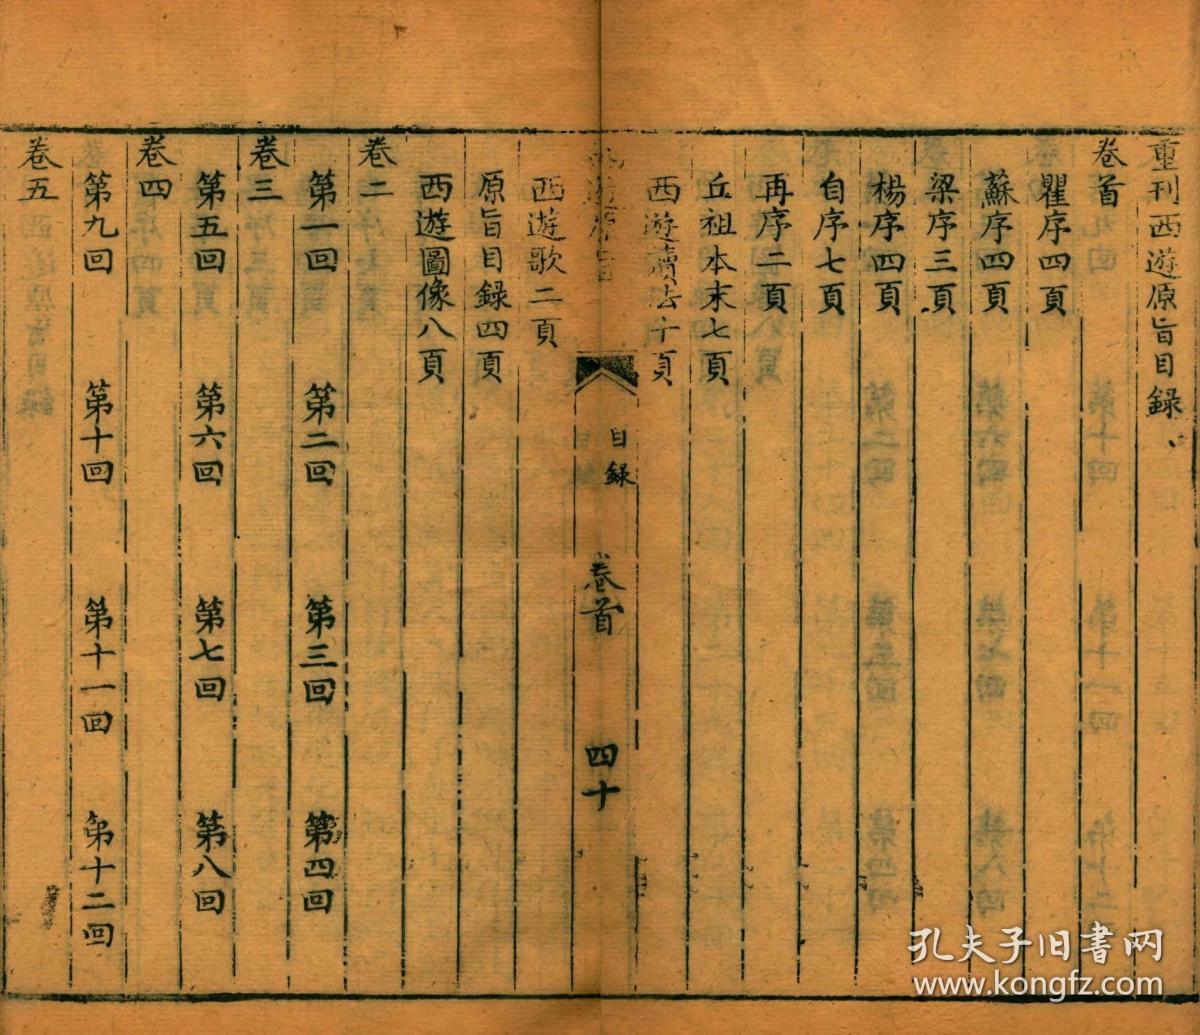 重刊西遊原旨目録、
卷首
瞿序四頁
蘇序四頁
梁序三頁
楊序四頁
自序七頁
再序二頁
丘祖本末七頁
西遊讀法十頁
目録
卷首
四十
西遊歌二頁
原旨目録四頁
西遊圖像八頁
卷二
第一回 第二回 第三回 第四回
卷三
第五回 第六回 第七回 第八回
卷四
第九回 第十回 第十一回 第十二回
卷五
孔夫子旧书网
www.kongfz.com